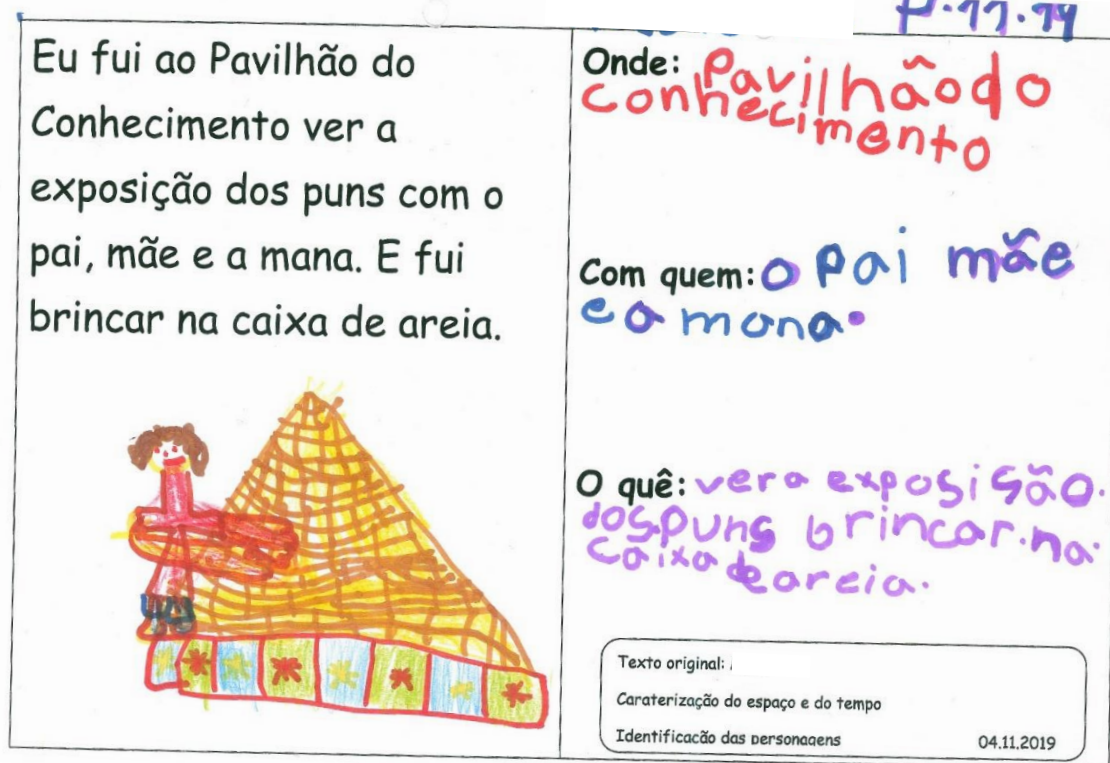 Eu fui ao Pavilhão do
Conhecimento ver a
exposição dos puns com o
pai, mãe e a mana. E fui
brincar na caixa de areia.
Onde: Pavilhãodo
conhecimento
Com quem: o pai mãe
e a mana.
O quê: ver a exposição.
dos puns brincar.na.
caixa de areia.
Texto original:
Caraterização do espaço e do tempo
Identificação das personagens
04.11.2019